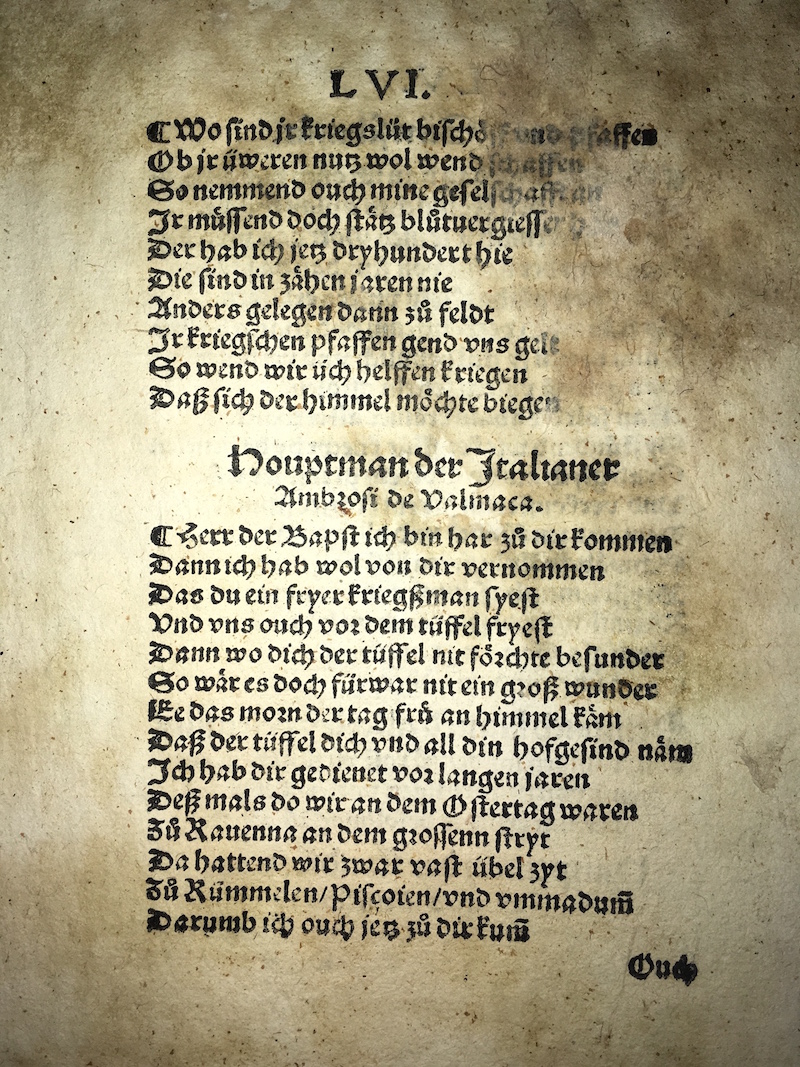 LVI.
¶ Wo sind jr kriegslüt bischöff und pfaffen
Ob jr üweren nutz wol wend schaffen
So nemmend ouch mine gesellschafft an
Jr müssend doch stätz blůtuergiessen
Der hab ich jetz dryhundert hie
Die sind in zähen jaren nie
Anders gelegen dann zů feldt
Jr kriegschen pfaffen gend vns gelt
So wend wir üch helffen kriegen
Daß sich der himmel möchte biegen
Houptman der Italianer
Ambrosi de Valmaca.
¶ Herr der Bapst ich bin har zů dir kommen
Dann ich hab wol von dir vernommen
Das du ein fryer kriegßman syest
Vnd vns ouch vor dem tüffel fryest
Dann wo dich der tüffel nit förchte besunder
So wär es doch fürwar nit ein groß wunder
Ee das morn der tag frů an himmel käm
Daß der tüffel dich vnd all din hofgesind näm
Ich hab dir gedienet vor langen jaren
Deß mals do wir an dem Ostertag waren
Zů Rauenna an dem grossenn stryt
Da hattend wir zwar vast übel zyt
Zů Rümmelen/Piscoien/vnd vmmadum̄
Darumb ich ouch jetz zů dir kum̄
Ouch